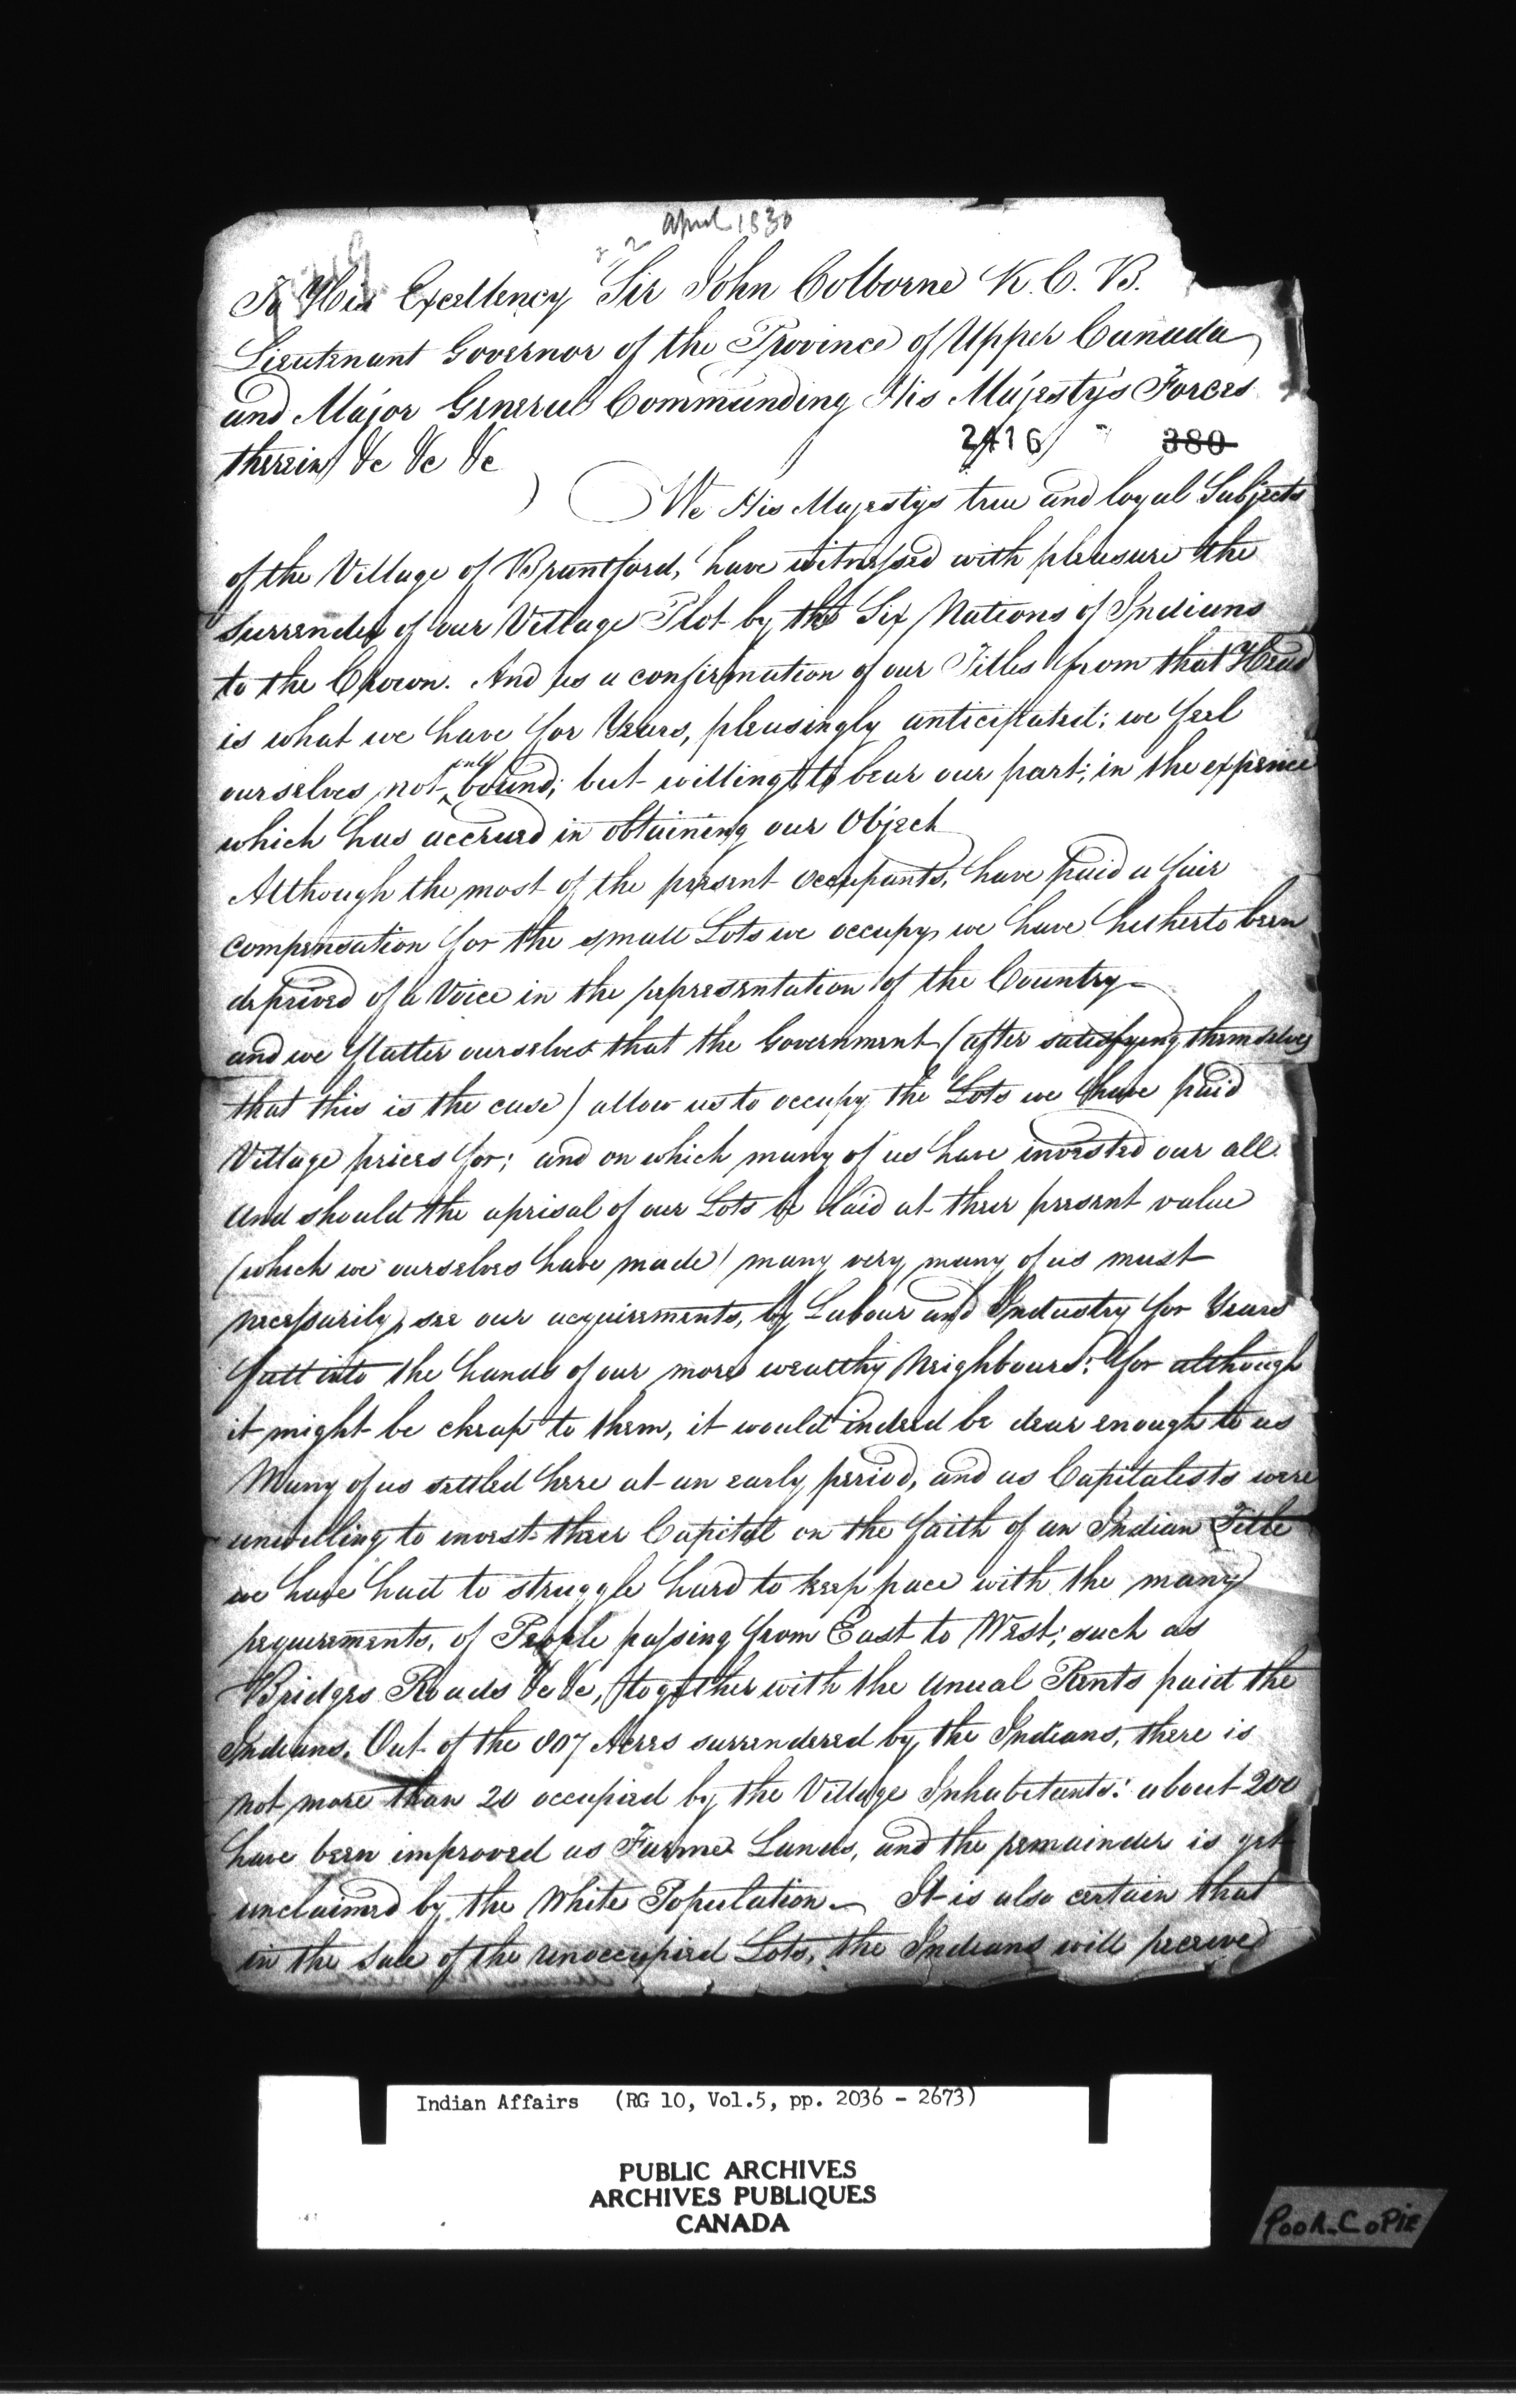 April 1830
To His Excellency Sir John Colborne K. C. B.
Lieutenant Governor of the Province of Upper Canada
and Major General Commanding His Majestys Forces
therein &c &c &c
2416 380
We His Majestys true and loyal Subjects
of the Village of Brantford, have witnessed with pleasure the
surrender of our Village Plot by the Six Nations of Indians
to the Crown. And as a confirmation of our Titles from that Head
is what we have for Years, pleasingly anticipated; we feel
only
ourselves not bound; but willing to bear our part; in the expence
which has accrued in obtaining our Object
Although the most of the present occupants, have paid a fair
compensation for the small Lots we occupy, we have hitherto been
deprived of a Voice in the representation of the Country—
and we flatter ourselves that the Government (after satisfying themselves
that this is the case) allow us to occupy the Lots we have paid
Village prices for; and on which many of us have invested our all.
And should the aprisal of our Lots be laid at their present value
(which we ourselves have made) many very many of us must
necessarily, see our acquirements, by Labour and Industry for Years
fall into the hands of our more wealthy Neighbours: for although
it might be cheap to them, it would indeed be dear enough to us
Many of us settled here at an early period, and as Capitalists were
unwilling to invest their Capital on the faith of an Indian Title
we have had to struggle hard to keep pace with the many
requirements, of People passing from East to West; such as
Bridges Roads &c &c, together with the anual Rents paid the
Indians. Out of the 807 Acres surrendered by the Indians, there is
not more than 20 occupied by the Village Inhabitants: about 200
have been improved as Farme Lands, and the remainder is yet
unclaimed by the White Population— It is also certain that
in the sale of the unoccupied Lots, the Indians will receive
Indian Affairs (RG 10, Vol.5, pp. 2036 - 2673)
PUBLIC ARCHIVES
ARCHIVES PUBLIQUES
CANADA
POOR-COPIE